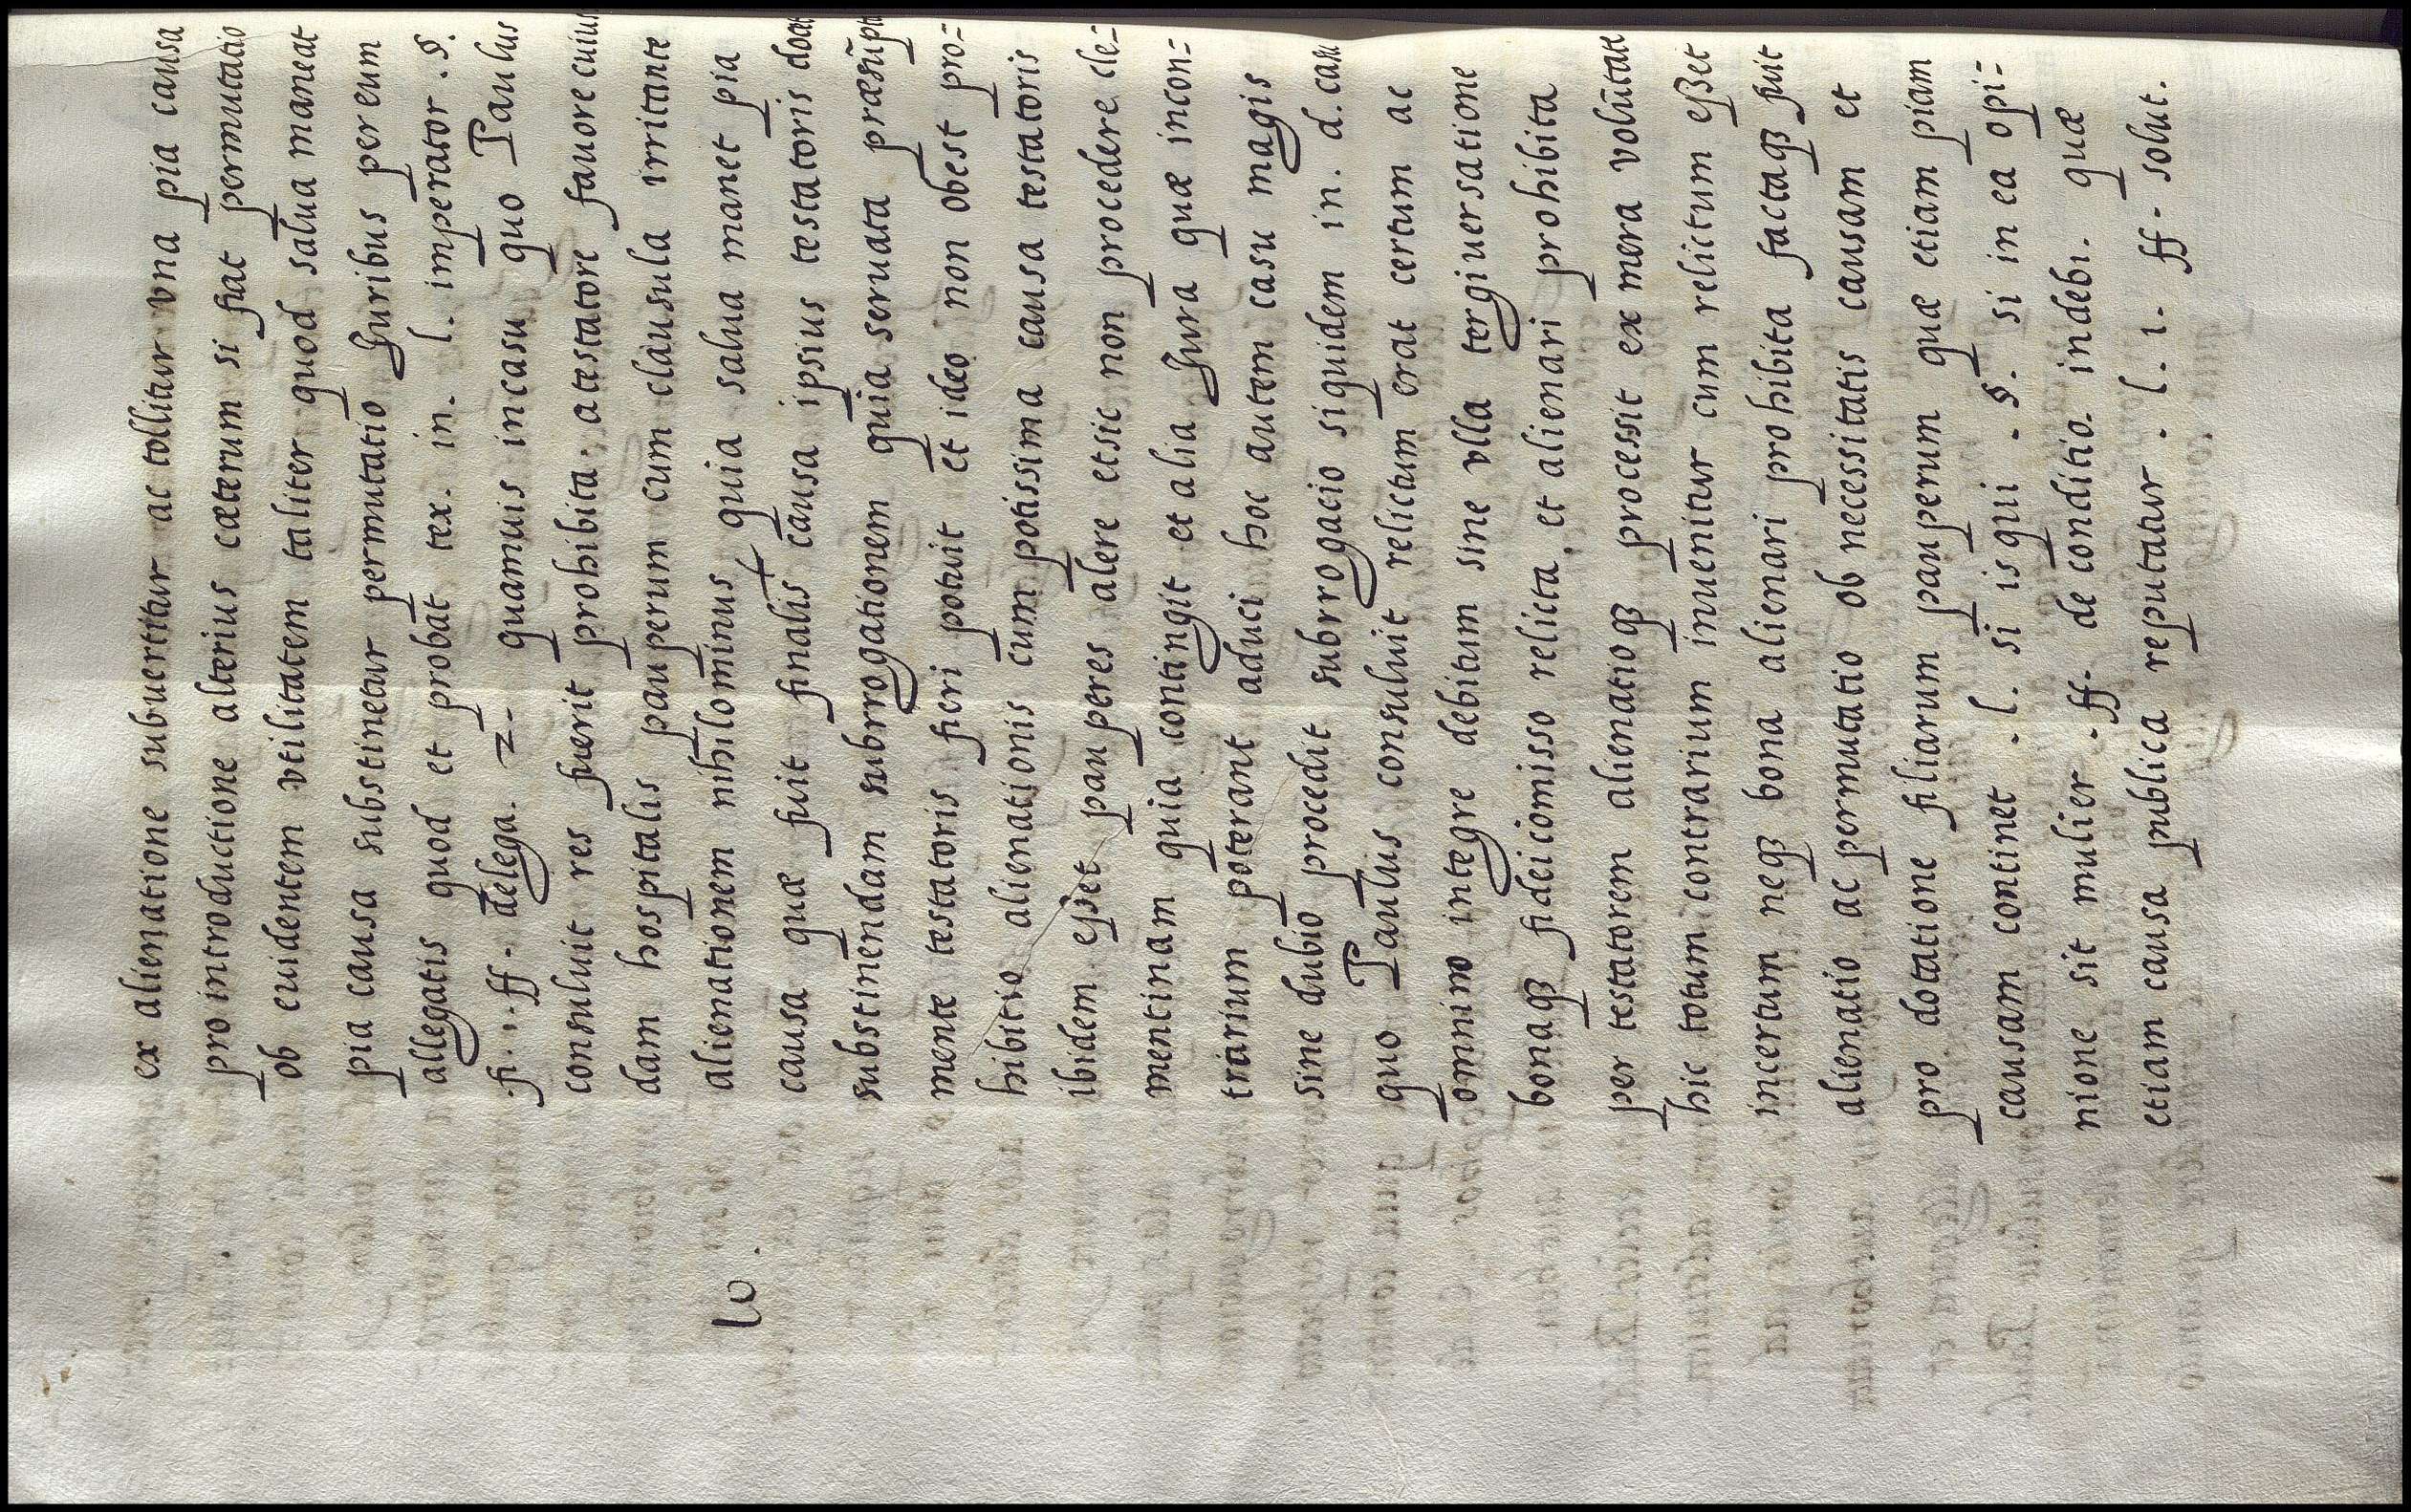 ex alienatione subuertitur ac tollitur vna pia causa
pro introductione alterius cæterum si fiat permutatio
ob euidentem vtilitatem taliter quod salua maneat
pia causa substinetur permutatio Juribus per eum
allegatis quod et probat tex. in. l. imperator .§.
.fi... ff. delega. 2. quamuis in casu quo Paulus
consuluit res fuerit prohibita a testatore fauore cuius
dam hospitalis pauperum cum clausula irritante
alienationem nihilominus quia salua manet pia
causa quæ fuit finalis causa ipsius testatoris docet
substinendam subrrogationem quia seruata præsūpta
mente testatoris fieri potuit et ideo non obest pro=
hibitio alienationis cum potissima causa testatoris
ibidem eßet pauperes alere et sic non procedere cle=
mentinam quia contingit et alia Jura quæ incon=
trarium poterant aduci hoc autem casu magis
sine dubio procedit subrrogacio siquidem in. d. casu
quo Paulus consuluit relictum erat certum ac
omnino integre debitum sine vlla tergiuersatione
bonaqꝫ fideicomisso relicta, et alienari prohibita
per testatorem alienatioqꝫ processit ex mera volūtate
hic totum contrarium inuenitur cum relictum eßet
incertum neqꝫ bona alienari prohibita factaqꝫ fuit
alienatio ac permutatio ob necessitatis causam et
pro dotatione filiarum pauperum quæ etiam piam
causam continet . l. si is qui . §. si in ea opi=
nione sit mulier . ff. de conditio. indebi. quæ
etiam causa publica reputatur . l. 1. ff. solut.